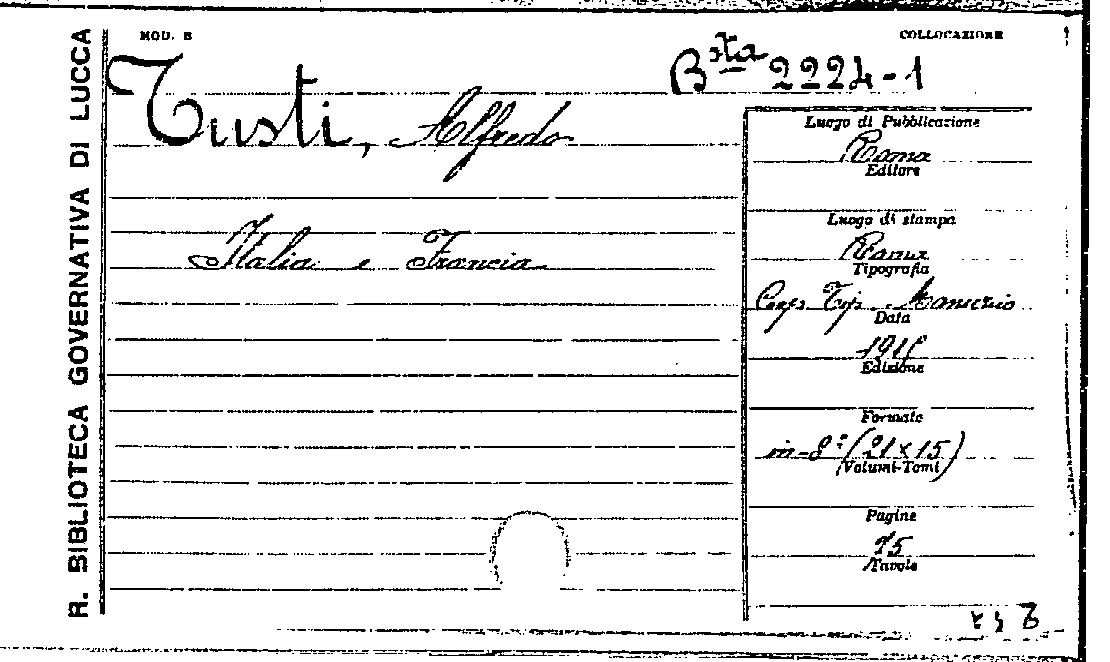 R. BIBLIOTECA GOVERNATIVA DI LUCCA
MOD. B
COLLOCAZIONE
Bsta 2224-1
Tusti, Alfredo
Italia e Francia
Luogo di Pubblicazione
Roma
Editore
Luogo di stampa
Roma
Tipografia
Coop. Tip. Manuzio
Data
Edizione
Formato
in-8º (21x15)
Volumi-Tomi
Pagine
15
Tavole